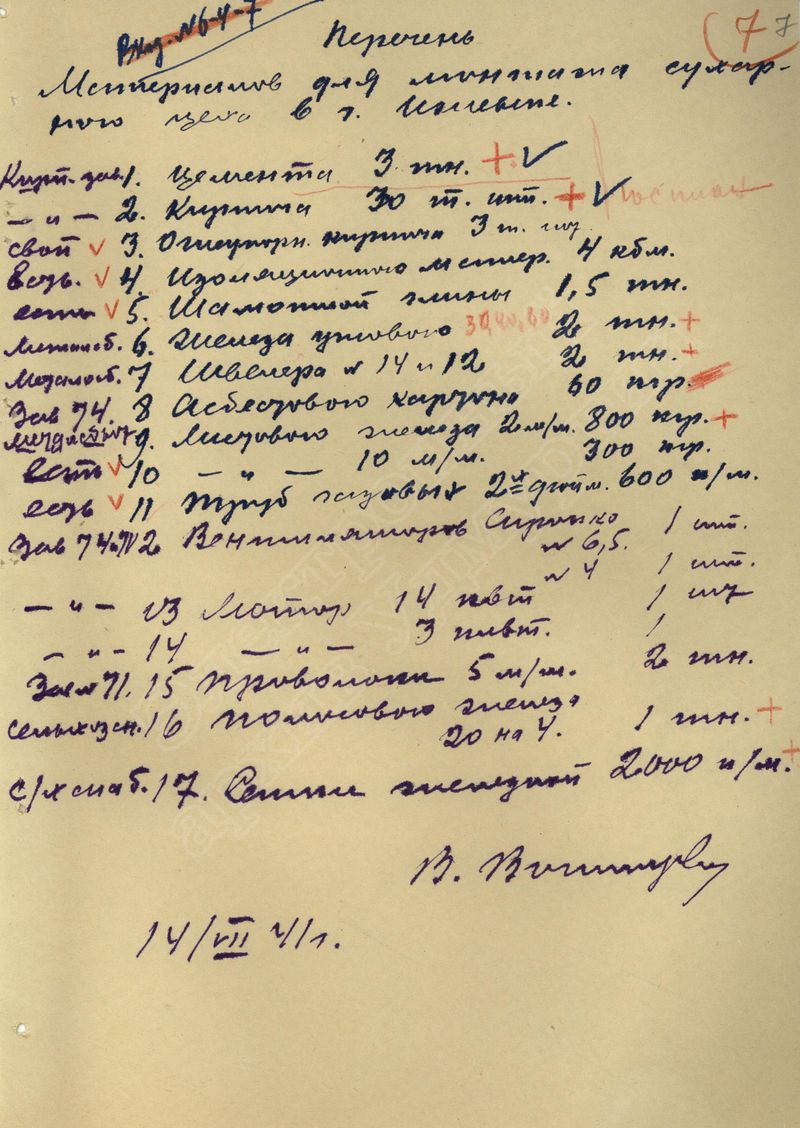 Вход. №6-4-7
7 7
Перечень
Материалов для монтажа сухар-
ного цеха в г. Ижевске.
Кирп. зав. 1. Цемента 3 тн. + ✓
— " — 2. Кирпича 30 т. шт. + ✓
свой ✓ 3. Огнеупорн. кирпича 3 т. шт.
есть. ✓ 4. Изоляционного матер. 4 кбм.
есть ✓ 5. Шамотной глины 1,5 тн.
Металосб. 6. Железа углового 30, 40, 60 2 тн. +
Металосб. 7 Швелера № 14 и 12 2 тн. +
Зав 74. 8 Асбестового картона 60 кгр.
9. Листового железа 2 м/м. 800 кгр. +
есть ✓ 10 — " — 10 м/м. 300 кгр.
есть ✓ 11 Труб газовых 2х дюйм. 600 п/м.
Зав 74. 12 Вентиляторов Сирокко № 6,5. 1 шт.
№ 4 1 шт.
— " — 13 Мотор 14 квт 1 шт
— " — 14 — " — 3 квт. 1
Зав 71. 15 Проволоки 5 м/м. 2 тн.
сельхозсн. 16 Полосового железа
20 на 4. 1 тн. +
с/х снаб. 17. Сетки железной 2000 п/м. +
14/VII 41 г.